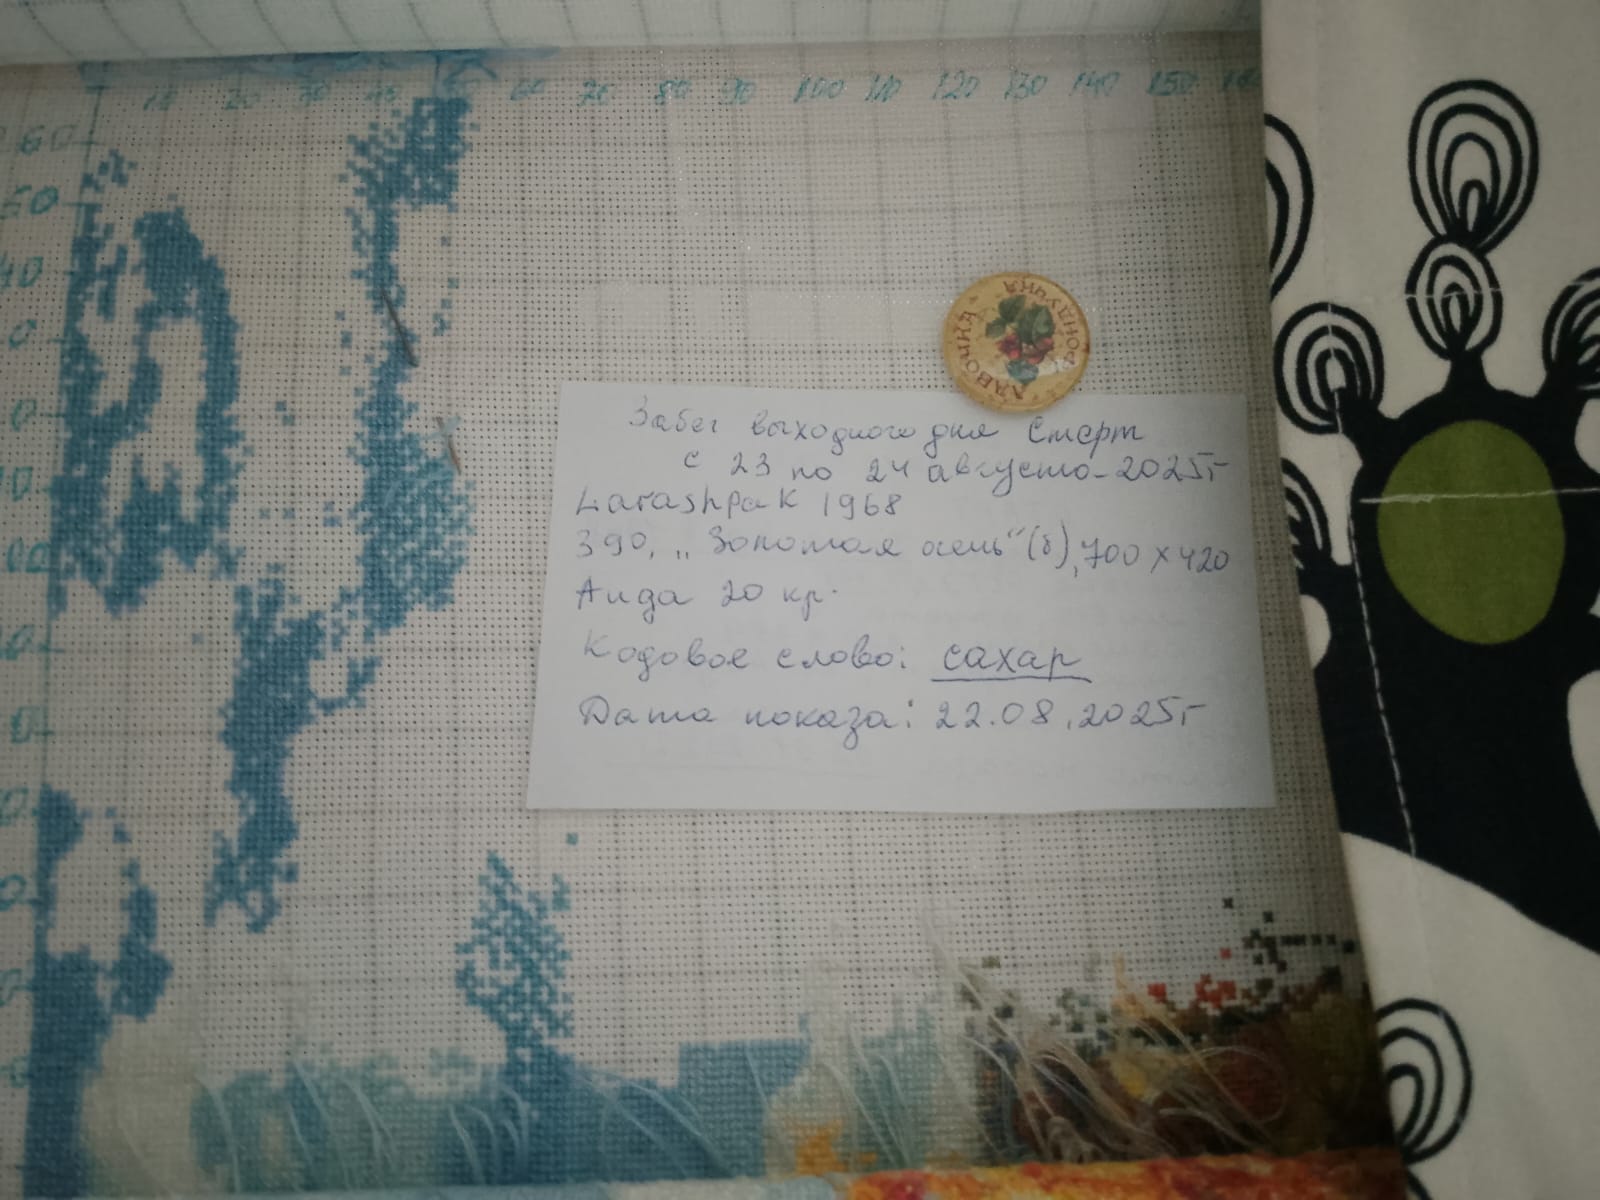 10 20 30 40 60 70 80 90 100 110 120 130 140 150
60
50
40
ЛАВОЧКА
Забег выходного дня Старт
с 23 по 24 августа-2025г
Larashpak 1968
390, „Золотая осень“ (б), 700 х 420
Аида 20 кр.
Кодовое слово: сахар
Дата показа: 22.08.2025г